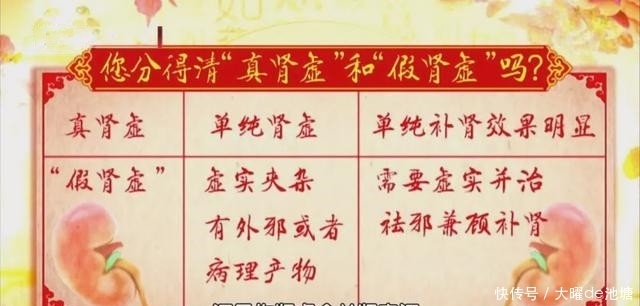 您分得清“真肾虚”和“假肾虚”吗?
真肾虚 单纯肾虚 单纯补肾效果明显
“假肾虚” 虚实夹杂 需要虚实并治
有外邪或者 祛邪兼顾补肾
病理产物
快传号／大曜de池塘